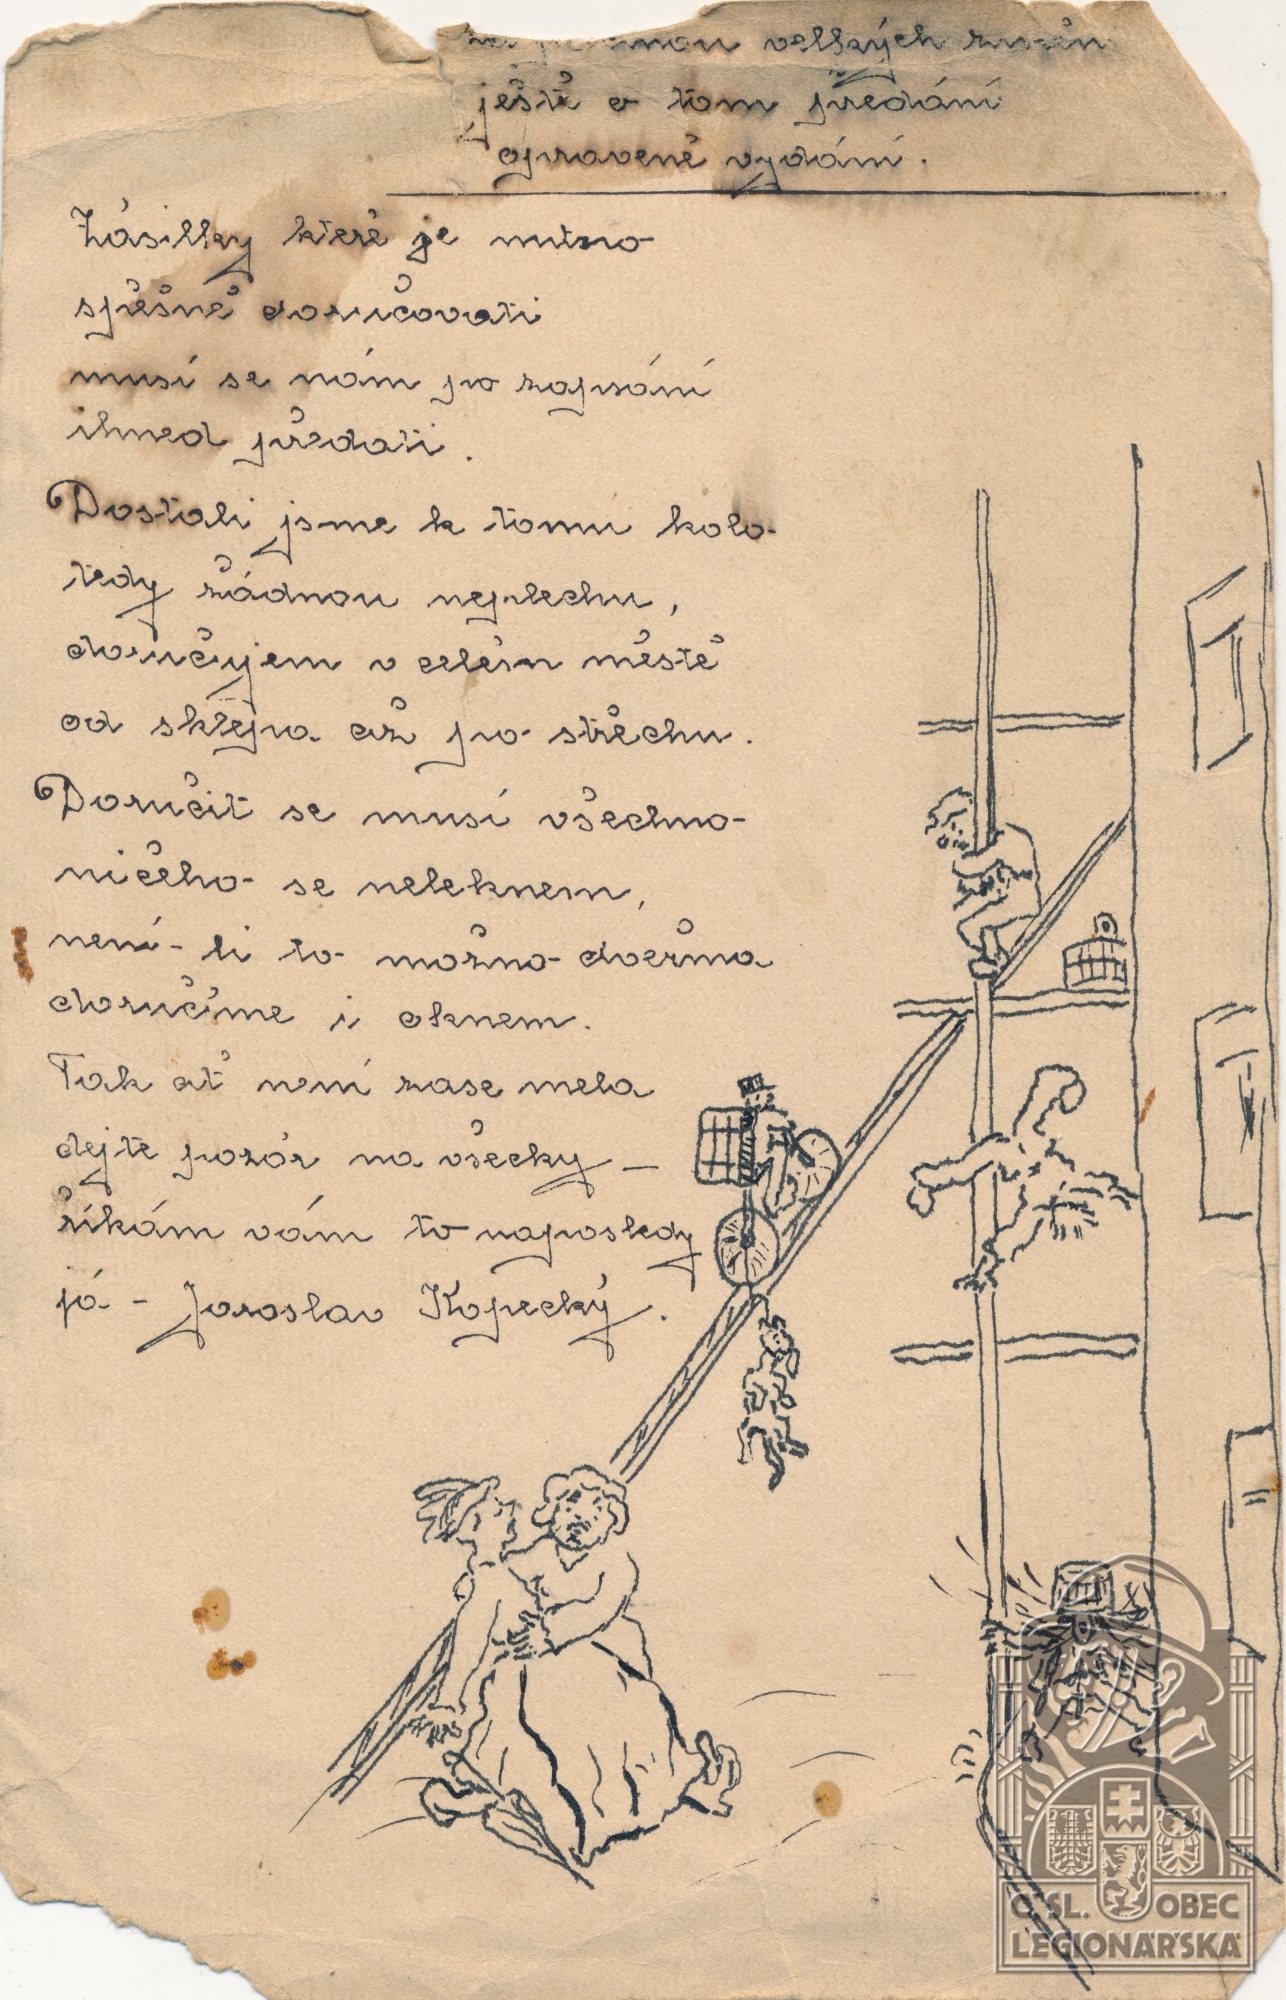 velkých
ještě o tom předání
opravené vydání.
Zásilky které je nutno
spěšně doručovati
musí se nám po zapsání
ihned předati.
Dostali jsme k tomu kolo-
tedy žádnou neplechu,
doručujem v celém městě
od sklepa až po střechu.
Doručit se musí všechno-
ničeho- se neleknem,
není-li to možno dveřma
doručíme i oknem.
Tak ať není zase mela
dejte pozór na všecky –
říkám vám to naposledy
já - Jaroslav Kopecký.
ČSL. OBEC
LEGIONÁŘSKÁ